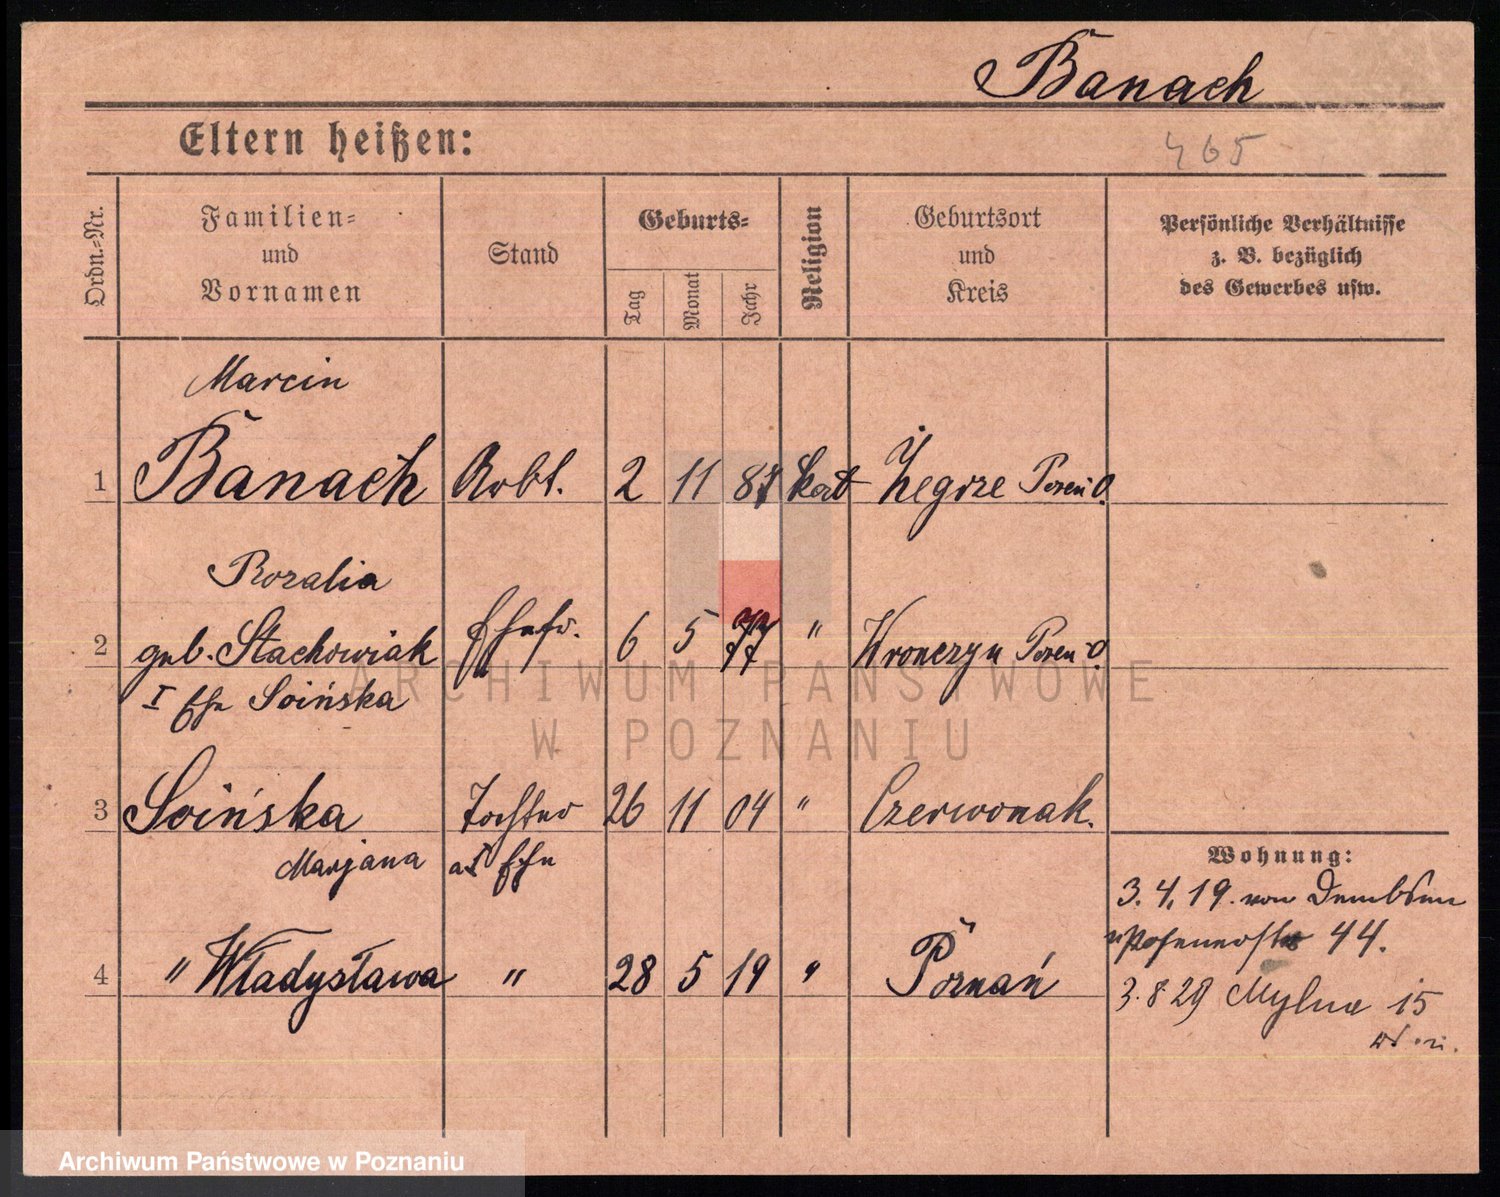 Banach
Eltern heißen:
465
Ordn.=Nr.
Familien=
und
Vornamen
Stand
Geburts=
Tag
Monat
Jahr
Religion
Geburtsort
und
Kreis
Persönliche Verhältnisse
z. B. bezüglich
des Gewerbes usw.
Marcin
1 Banach Arbt. 2 11 87 kat Żegrze Posen O.
Rozalia
2 geb. Stachowiak Ehefr. 6 5 77 " Wronczyn Posen O.
I Ehe Soińska
3 Soińska Tochter 26 11 04 " Czerwonak.
Marjana a I Ehe
4 " Władysława " 28 5 19 " Poznań
Wohnung:
3. 4. 19. von Dembsen
Posenerstr 44.
3. 8 29 Mylna 15
ARCHIWUM PAŃSTWOWE
W POZNANIU
Archiwum Państwowe w Poznaniu